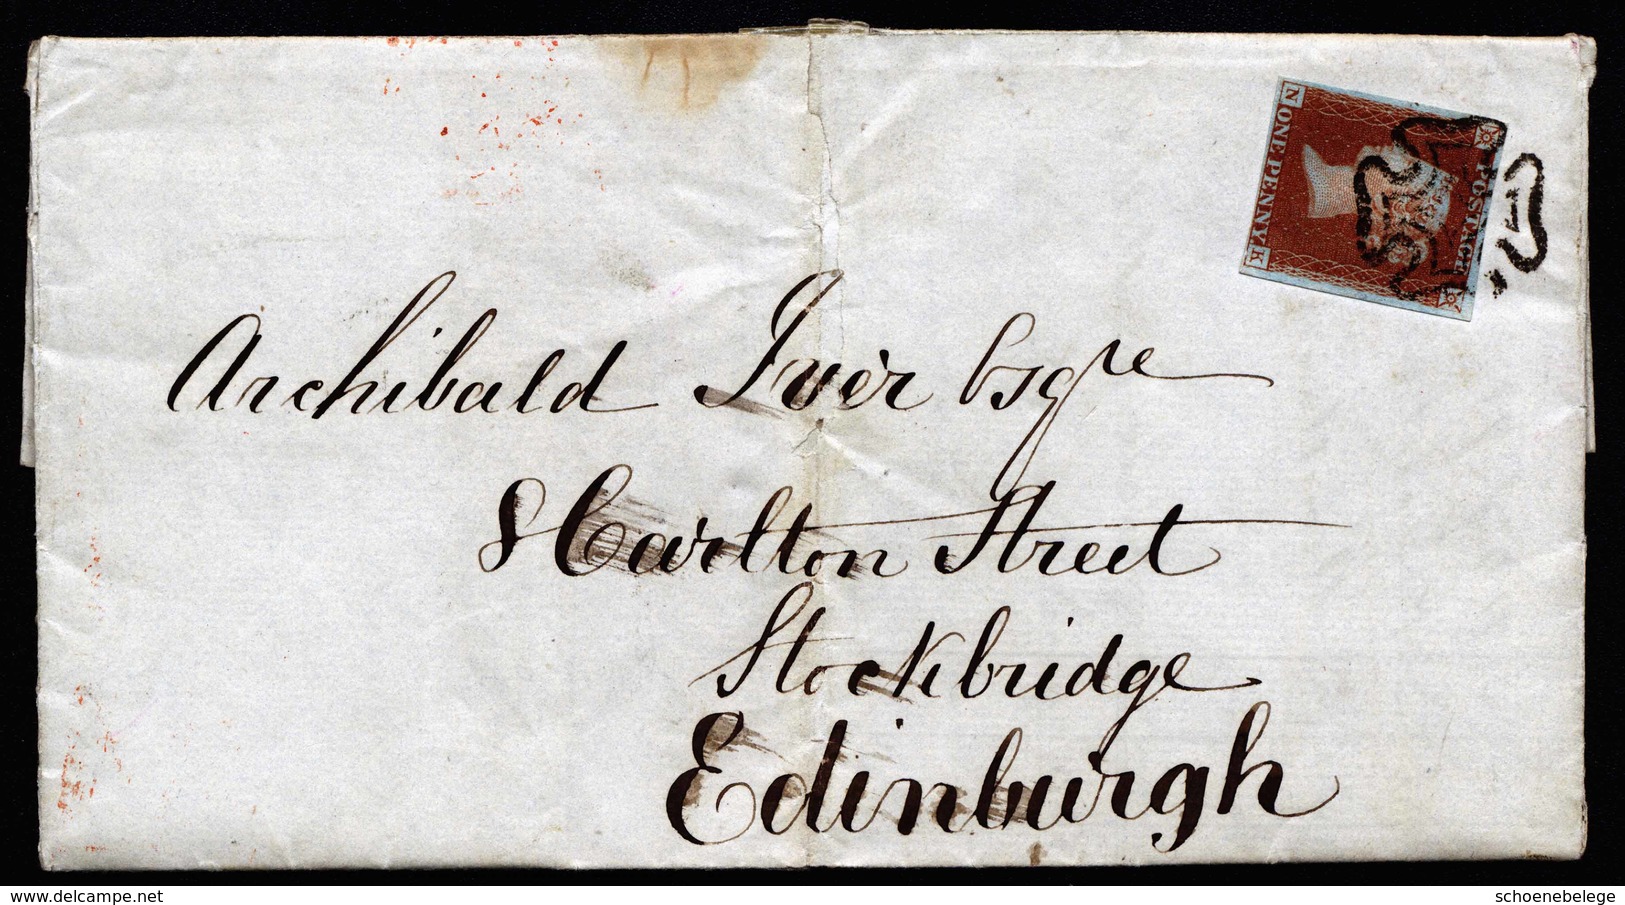 POSTAGE
N ONE PENNY K
Archibald Iver Esqre
8 Carlton Street
Stockbridge
Edinburgh
delcampe.net
schoenebelege